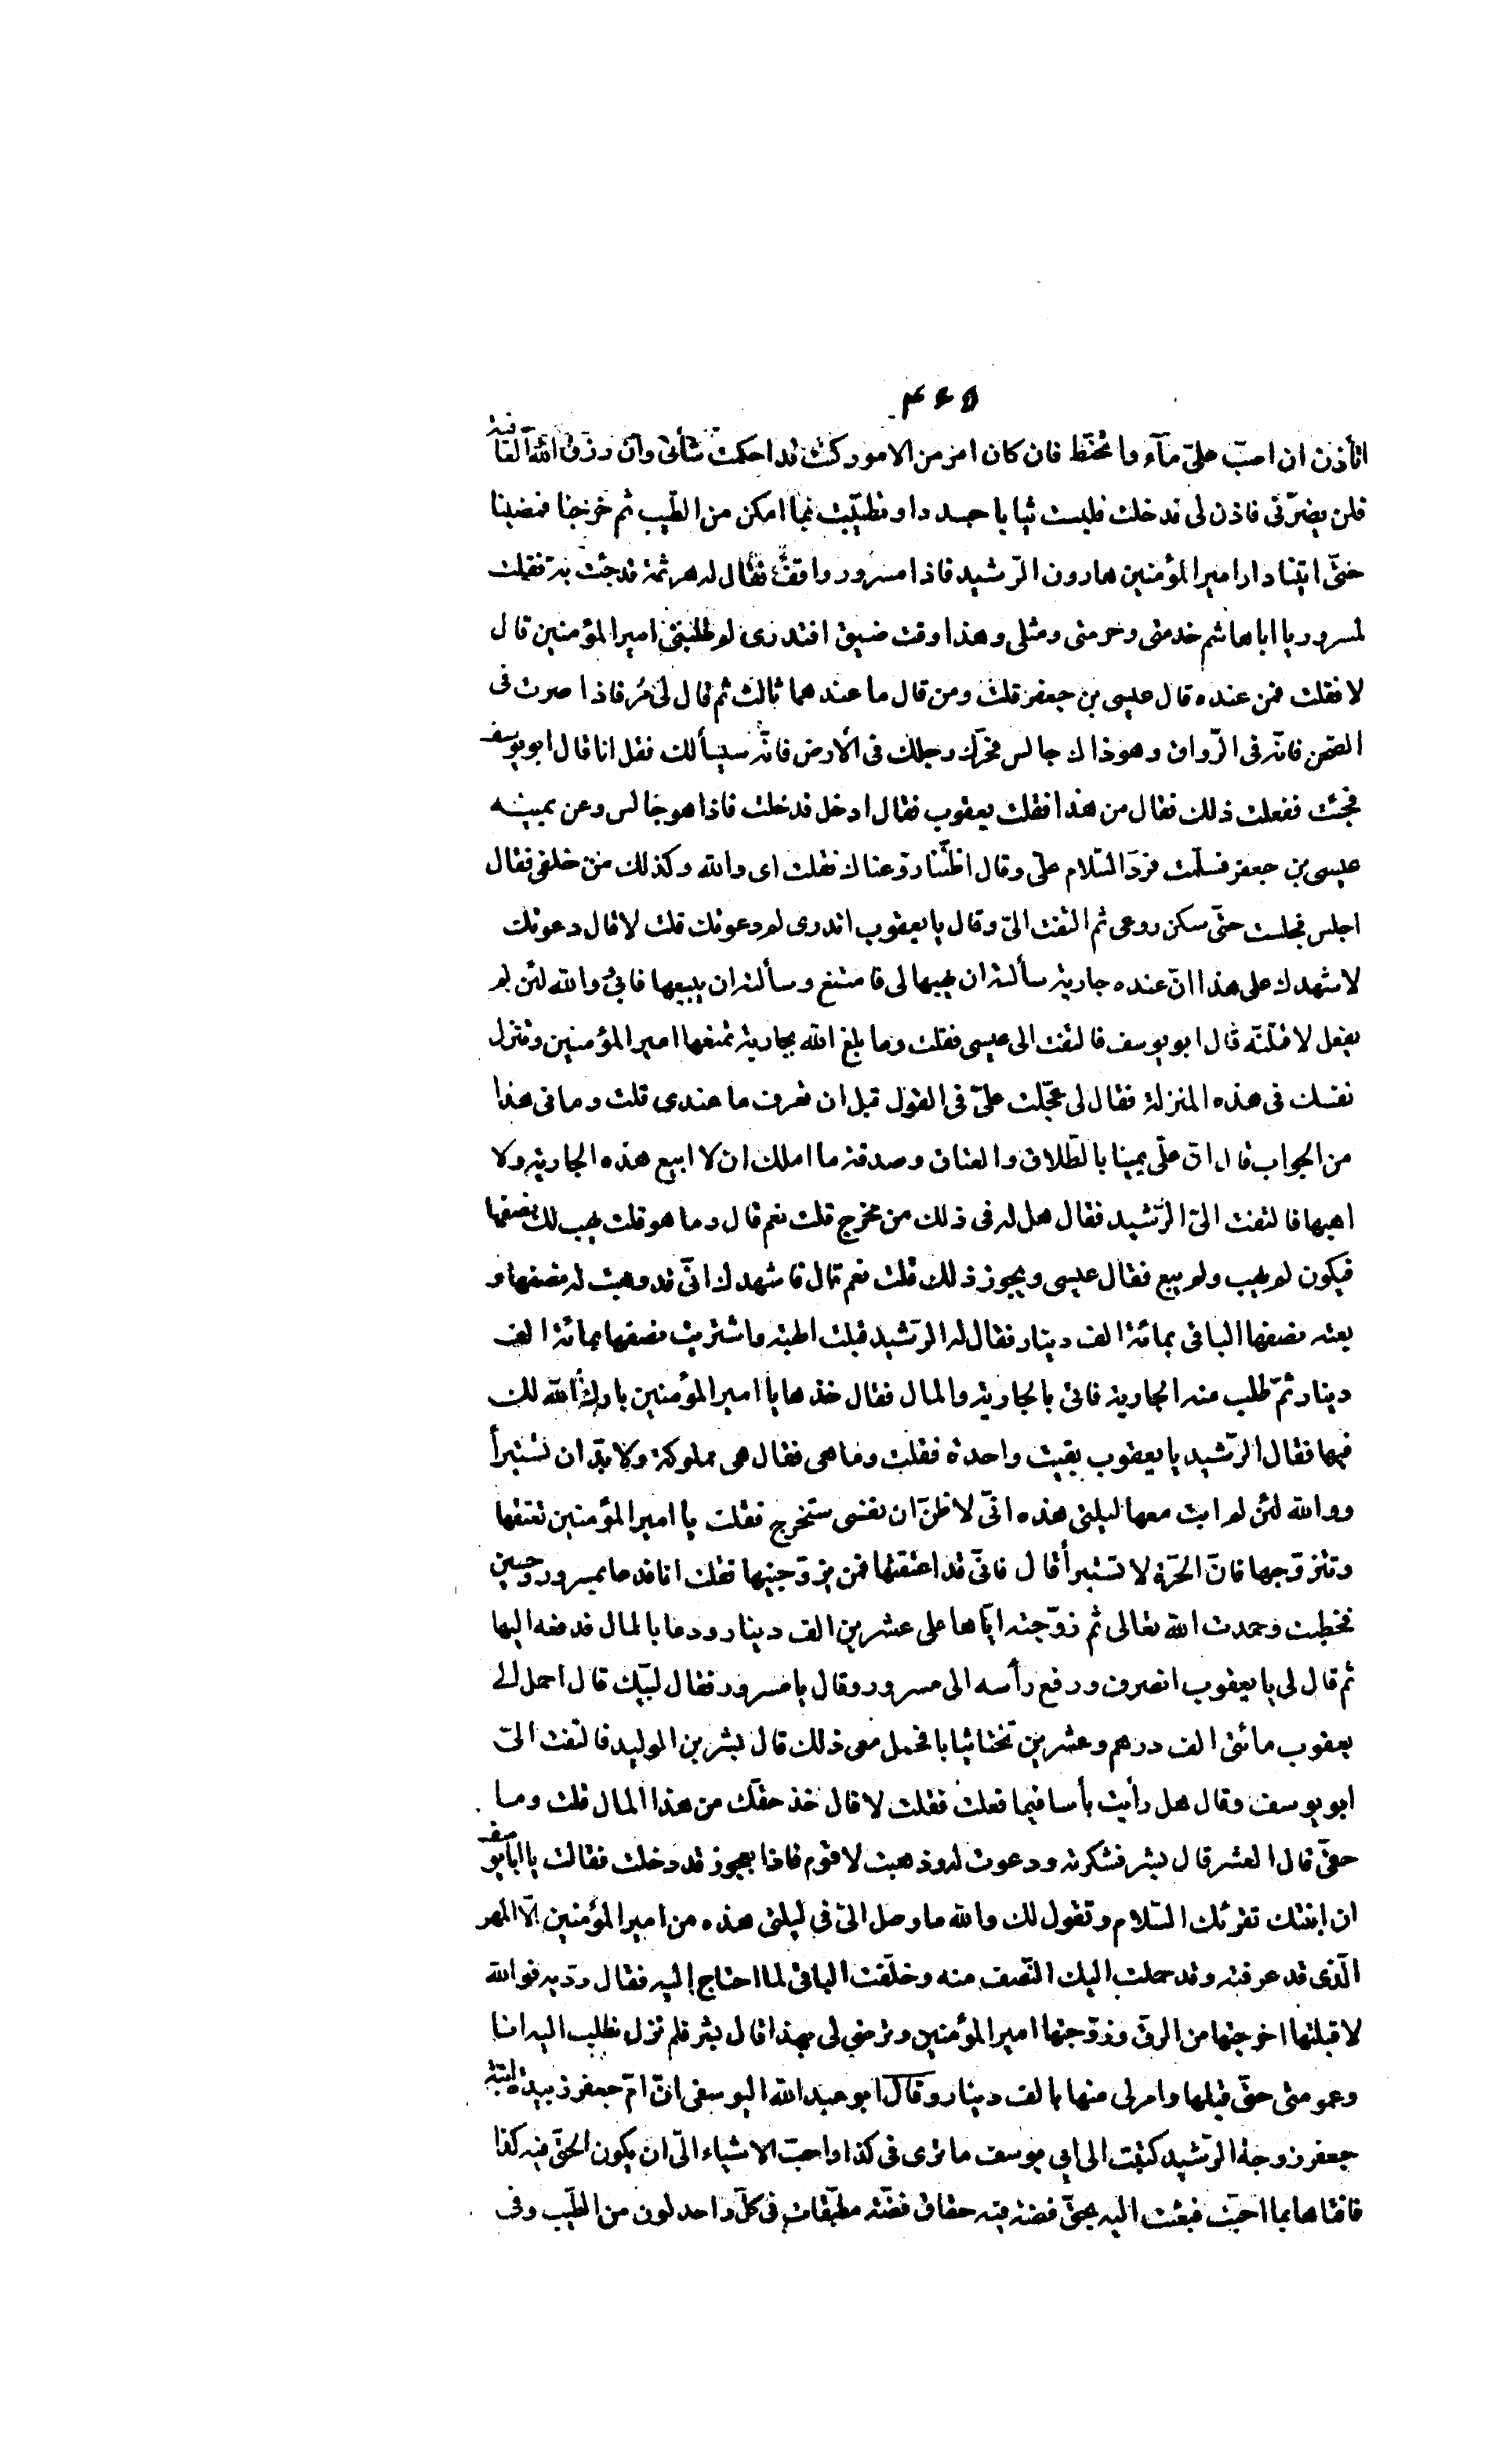 ۴۶۵
اتأذن ان اصبّ علىّ مآء واتحنّط فان كان امر من الامور كنت قد احكمت شأنى وان رزق اللّه العافية
فلن يضرّنى فاذن لى فدخلت فلبست ثيابا جددا وتطيّبت بما امكن من الطّيب ثم خرجنا فمضينا
حتّى اتينا دار امير المؤمنين هارون الرّشيد فاذا مسرور واقف فقال له هرثمة قد جئت به فقلت
لمسرور يا ابا هاشم خدمتى وحرمتى ومثلى وهذا وقت ضيق افتدرى لم طلبنى امير المؤمنين قال
لا فقلت فمن عنده قال عيسى بن جعفر قلت ومن قال ما عندهما ثالث ثم قال لى مُر فاذا صرت فى
الصّحن فانّه فى الرّواق وهو ذاك جالس فحرّك رجلك فى الأرض فانّه سيسألك فقل انا قال ابو يوسف
فجئت ففعلت ذلك فقال من هذا فقلت يعقوب فقال ادخل فدخلت فاذا هو جالس وعن يمينه
عيسى بن جعفر فسلّمت فردّ السّلام علىّ وقال اظنّنا روّعناك فقلت اى واللّه وكذلك من خلفى فقال
اجلس فجلست حتّى سكن روعى ثم التفت الىّ وقال يا يعقوب اتدرى لم دعوتك قلت لا قال دعوتك
لاشهدك على هذا انّ عنده جارية سألته ان يهبها لى فامتنع وسألته ان يبيعها فابى واللّه لئن لم
يفعل لاقتلنّه قال ابو يوسف فالتفت الى عيسى فقلت وما بلغ اللّه بجارية تمنعها امير المؤمنين وتنزل
نفسك فى هذه المنزلة فقال لى عجّلت علىّ فى القول قبل ان تعرف ما عندى قلت وما فى هذا
من الجواب قال انّ علىّ يمينا بالطّلاق والعتاق وصدقة ما املك ان لا ابيع هذه الجارية ولا
اهبها فالتفت الىّ الرّشيد فقال هل له فى ذلك من مخرج قلت نعم قال وما هو قلت يهب لك نصفها
فيكون لم يهب ولم يبع فقال عيسى ويجوز ذلك قلت نعم قال فاشهدك انّى قد وهبت له نصفها و
بعته نصفها الباقى بمائة الف دينار فقال له الرّشيد قبلت الهبة واشتريت نصفها بمائة الف
دينار ثمّ طلب منه الجارية فاتى بالجارية والمال فقال خذها يا امير المؤمنين بارك اللّه لك
فيها فقال الرّشيد يا يعقوب بقيت واحدة فقلت وما هى فقال هى مملوكة ولا بدّ ان تستبرأ
وواللّه لئن لم ابت معها ليلتى هذه انّى لاظنّ ان نفسى ستخرج فقلت يا امير المؤمنين تعتقها
وتتزوّجها فانّ الحرّة لا تستبرأ قال فانّى قد اعتقتها فمن يزوّجنيها فقلت انا فدعا بمسرور وحسين
فخطبت وحمدت اللّه تعالى ثم زوّجته ايّاها على عشرين الف دينار ودعا بالمال فدفعه اليها
ثم قال لى يا يعقوب انصرف ورفع رأسه الى مسرور وقال يا مسرور فقال لبّيك قال احمل الى
يعقوب مائتى الف درهم وعشرين تختا ثيابا فحمل معى ذلك قال بشر بن الوليد فالتفت الىّ
ابو يوسف وقال هل رأيت بأسا فيما فعلت فقلت لا قال خذ حقّك من هذا المال قلت وما
حقّى قال العشر قال بشر فشكرته ودعوت له وذهبت لاقوم فاذا بعجوز قد دخلت فقالت يا ابا يوسف
ان ابنتك تقرئك السّلام وتقول لك واللّه ما وصل الىّ فى ليلتى هذه من امير المؤمنين الّا المهر
الّذى قد عرفته وقد حملت اليك النّصف منه وخلّفت الباقى لما احتاج اليه فقال ردّيه فواللّه
لا قبلتها اخرجتها من الرقّ وزوّجتها امير المؤمنين وترضى لى بهذا قال بشر فلم نزل نطلب اليه انا
وعمومتى حتّى قبلها وامر لى منها بالف دينار وقال ابو عبد اللّه اليوسفى انّ امّ جعفر زبيدة ابنة
جعفر زوجة الرّشيد كتبت الى ابى يوسف ما ترى فى كذا واحبّ الاشياء الىّ ان يكون الحقّ فيه كذا
فافتاها بما احبّت فبعثت اليه بحقّ فضّة فيه حقاق فضّة مطبّقات فى كلّ واحد لون من الطّيب وفى